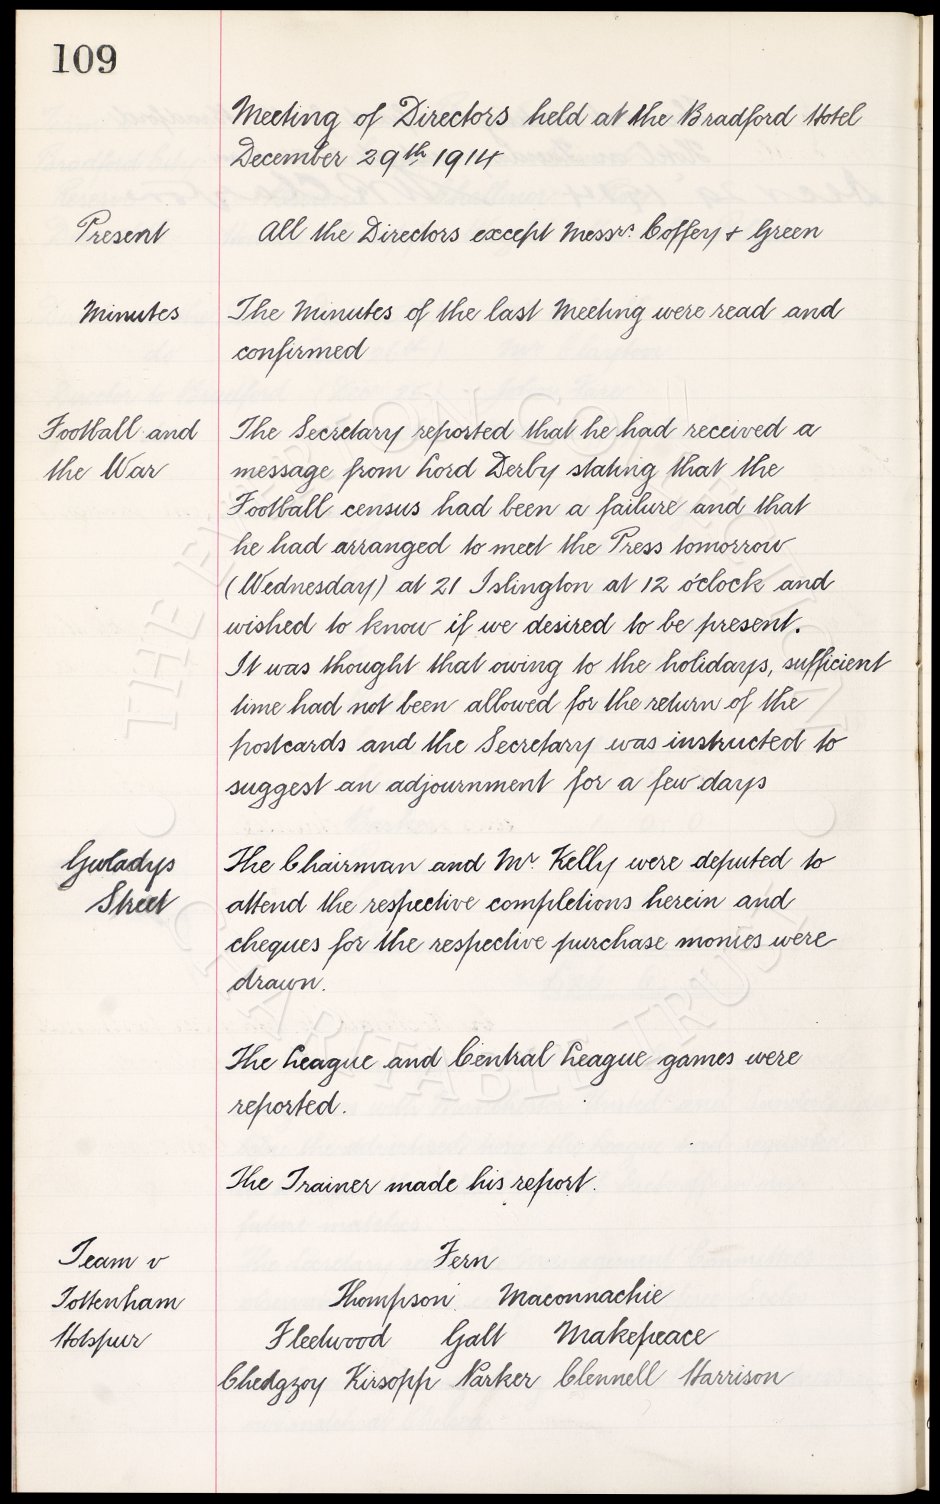 109
Meeting of Directors held at the Bradford Hotel
December 29th 1914
Present All the Directors except Messrs. Coffey & Green
Minutes The Minutes of the last Meeting were read and
confirmed
Football and The Secretary reported that he had received a
the War message from Lord Derby stating that the
Football census had been a failure and that
he had arranged to meet the Press tomorrow
(Wednesday) at 21 Islington at 12 o'clock and
wished to know if we desired to be present.
It was thought that owing to the holidays, sufficient
time had not been allowed for the return of the
postcards and the Secretary was instructed to
suggest an adjournment for a few days
Gwladys The Chairman and Mr. Kelly were deputed to
Street attend the respective completions herein and
cheques for the respective purchase monies were
drawn.
The League and Central League games were
reported.
The Trainer made his report.
Team v Fern
Tottenham Thompson Maconnachie
Hotspur Fleetwood Galt Makepeace
Chedgzoy Kirsopp Parker Clennell Harrison
THE EVERTON COLLECTION
CHARITABLE TRUST